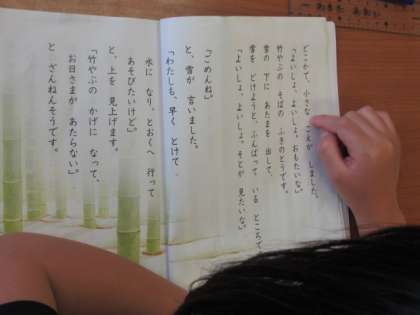 どこかで、小さな こえが しました。
「よいしょ、よいしょ。おもたいな。」
竹やぶの そばの ふきのとうです。
雪の 下に あたまを 出して、
雪を どけようと、ふんばって いる ところです。
「よいしょ、よいしょ。そとが 見たいな。」
「ごめんね。」
と、雪が 言いました。
「わたしも、早く とけて
水に なり、とおくへ 行って
あそびたいけど。」
と、上を 見上げます。
「竹やぶの かげに なって、
お日さまが あたらない。」
と ざんねんそうです。